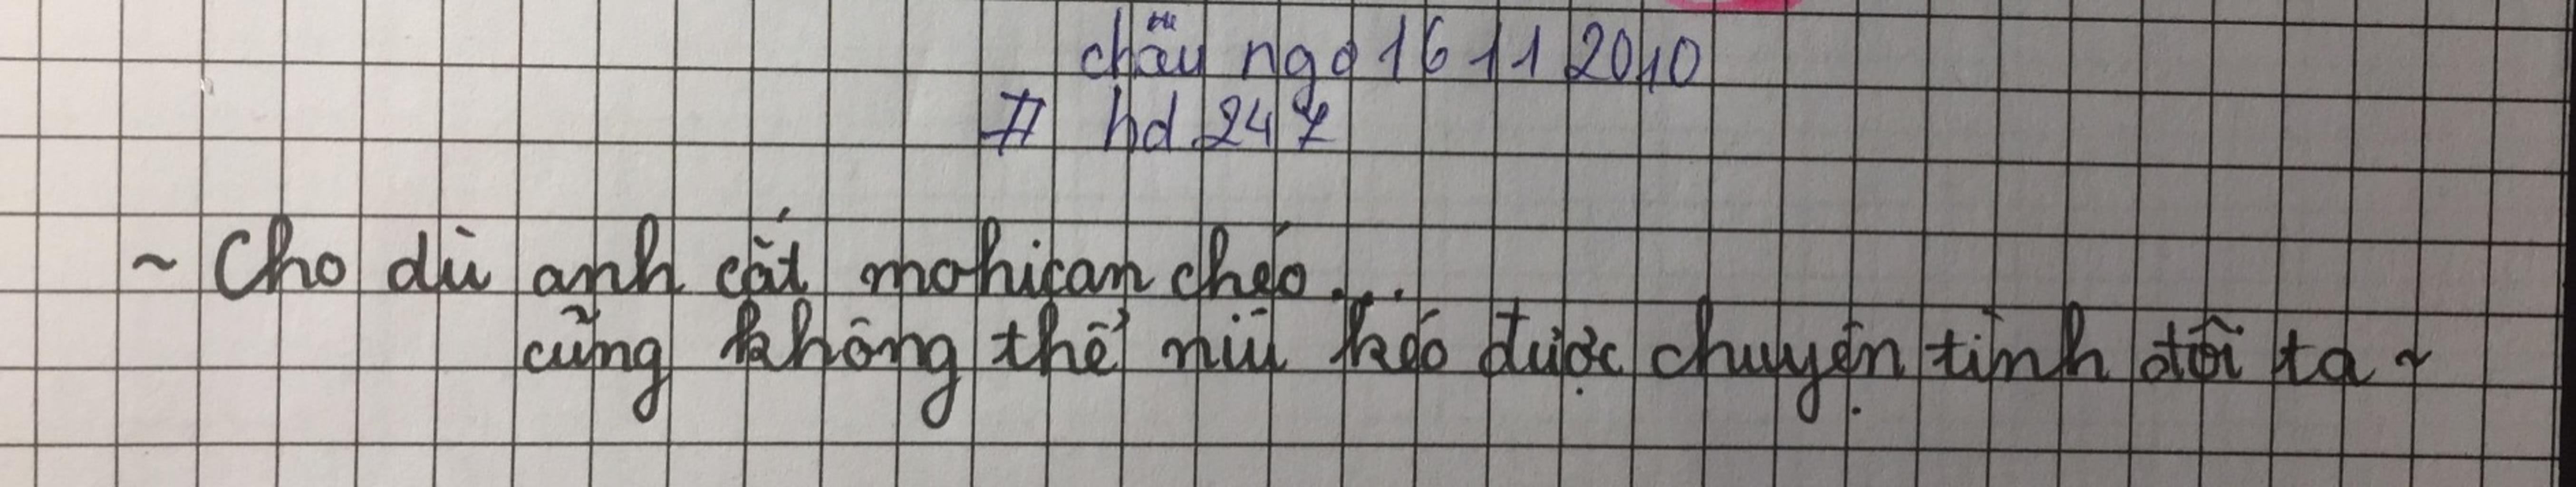 chẫu ngo 16 11 2010
# hd 247
~ Cho dù anh cắt mohican chéo...
cũng không thể níu kéo được chuyện tình đôi ta ~